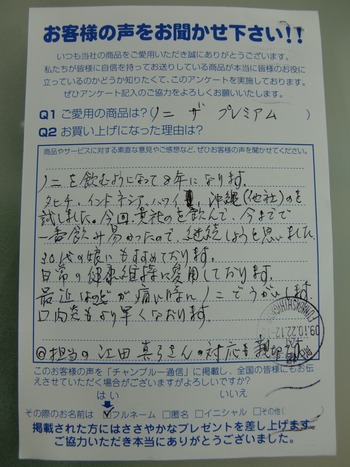 お客様の声をお聞かせ下さい!!
いつも当社の商品をご愛用いただき誠にありがとうございます。
私たちが皆様に自信を持ってお送りしている商品が本当に皆様のお役に
立っているのかどうか知りたくて、このアンケートを実施しております。
ぜひアンケート記入のご協力をよろしくお願いいたします。
Q1 ご愛用の商品は?(ノニ ザ プレミアム )
Q2 お買い上げになった理由は?
商品やサービスに対する素直な意見やご感想など、ぜひお客様の声を聞かせてください。
ノニを飲むようになって8年になります。
タヒチ、インドネシア、ハワイ、沖縄(他社)のを
試しました。今回、貴社のを飲んで、今までで
一番飲み易かったので、継続しようと思いました。
30代の娘にもすすめております。
日常の健康維持に愛用しております。
最近はのどが痛い時にノニでうがいします
口内炎もより早くなおります。
◎担当の江田真弓さんの対応も親切
09.10.22.12
このお客様の声を「チャンプルー通信」に掲載し、全国の皆様にもお伝
えさせていただく場合がございますがよろしいですか?
はい いいえ
その際のお名前は ☑フルネーム □匿名 □イニシャル □その他(
掲載された方にはささやかなプレゼントを差し上げます。
ご協力いただき本当にありがとうございました。